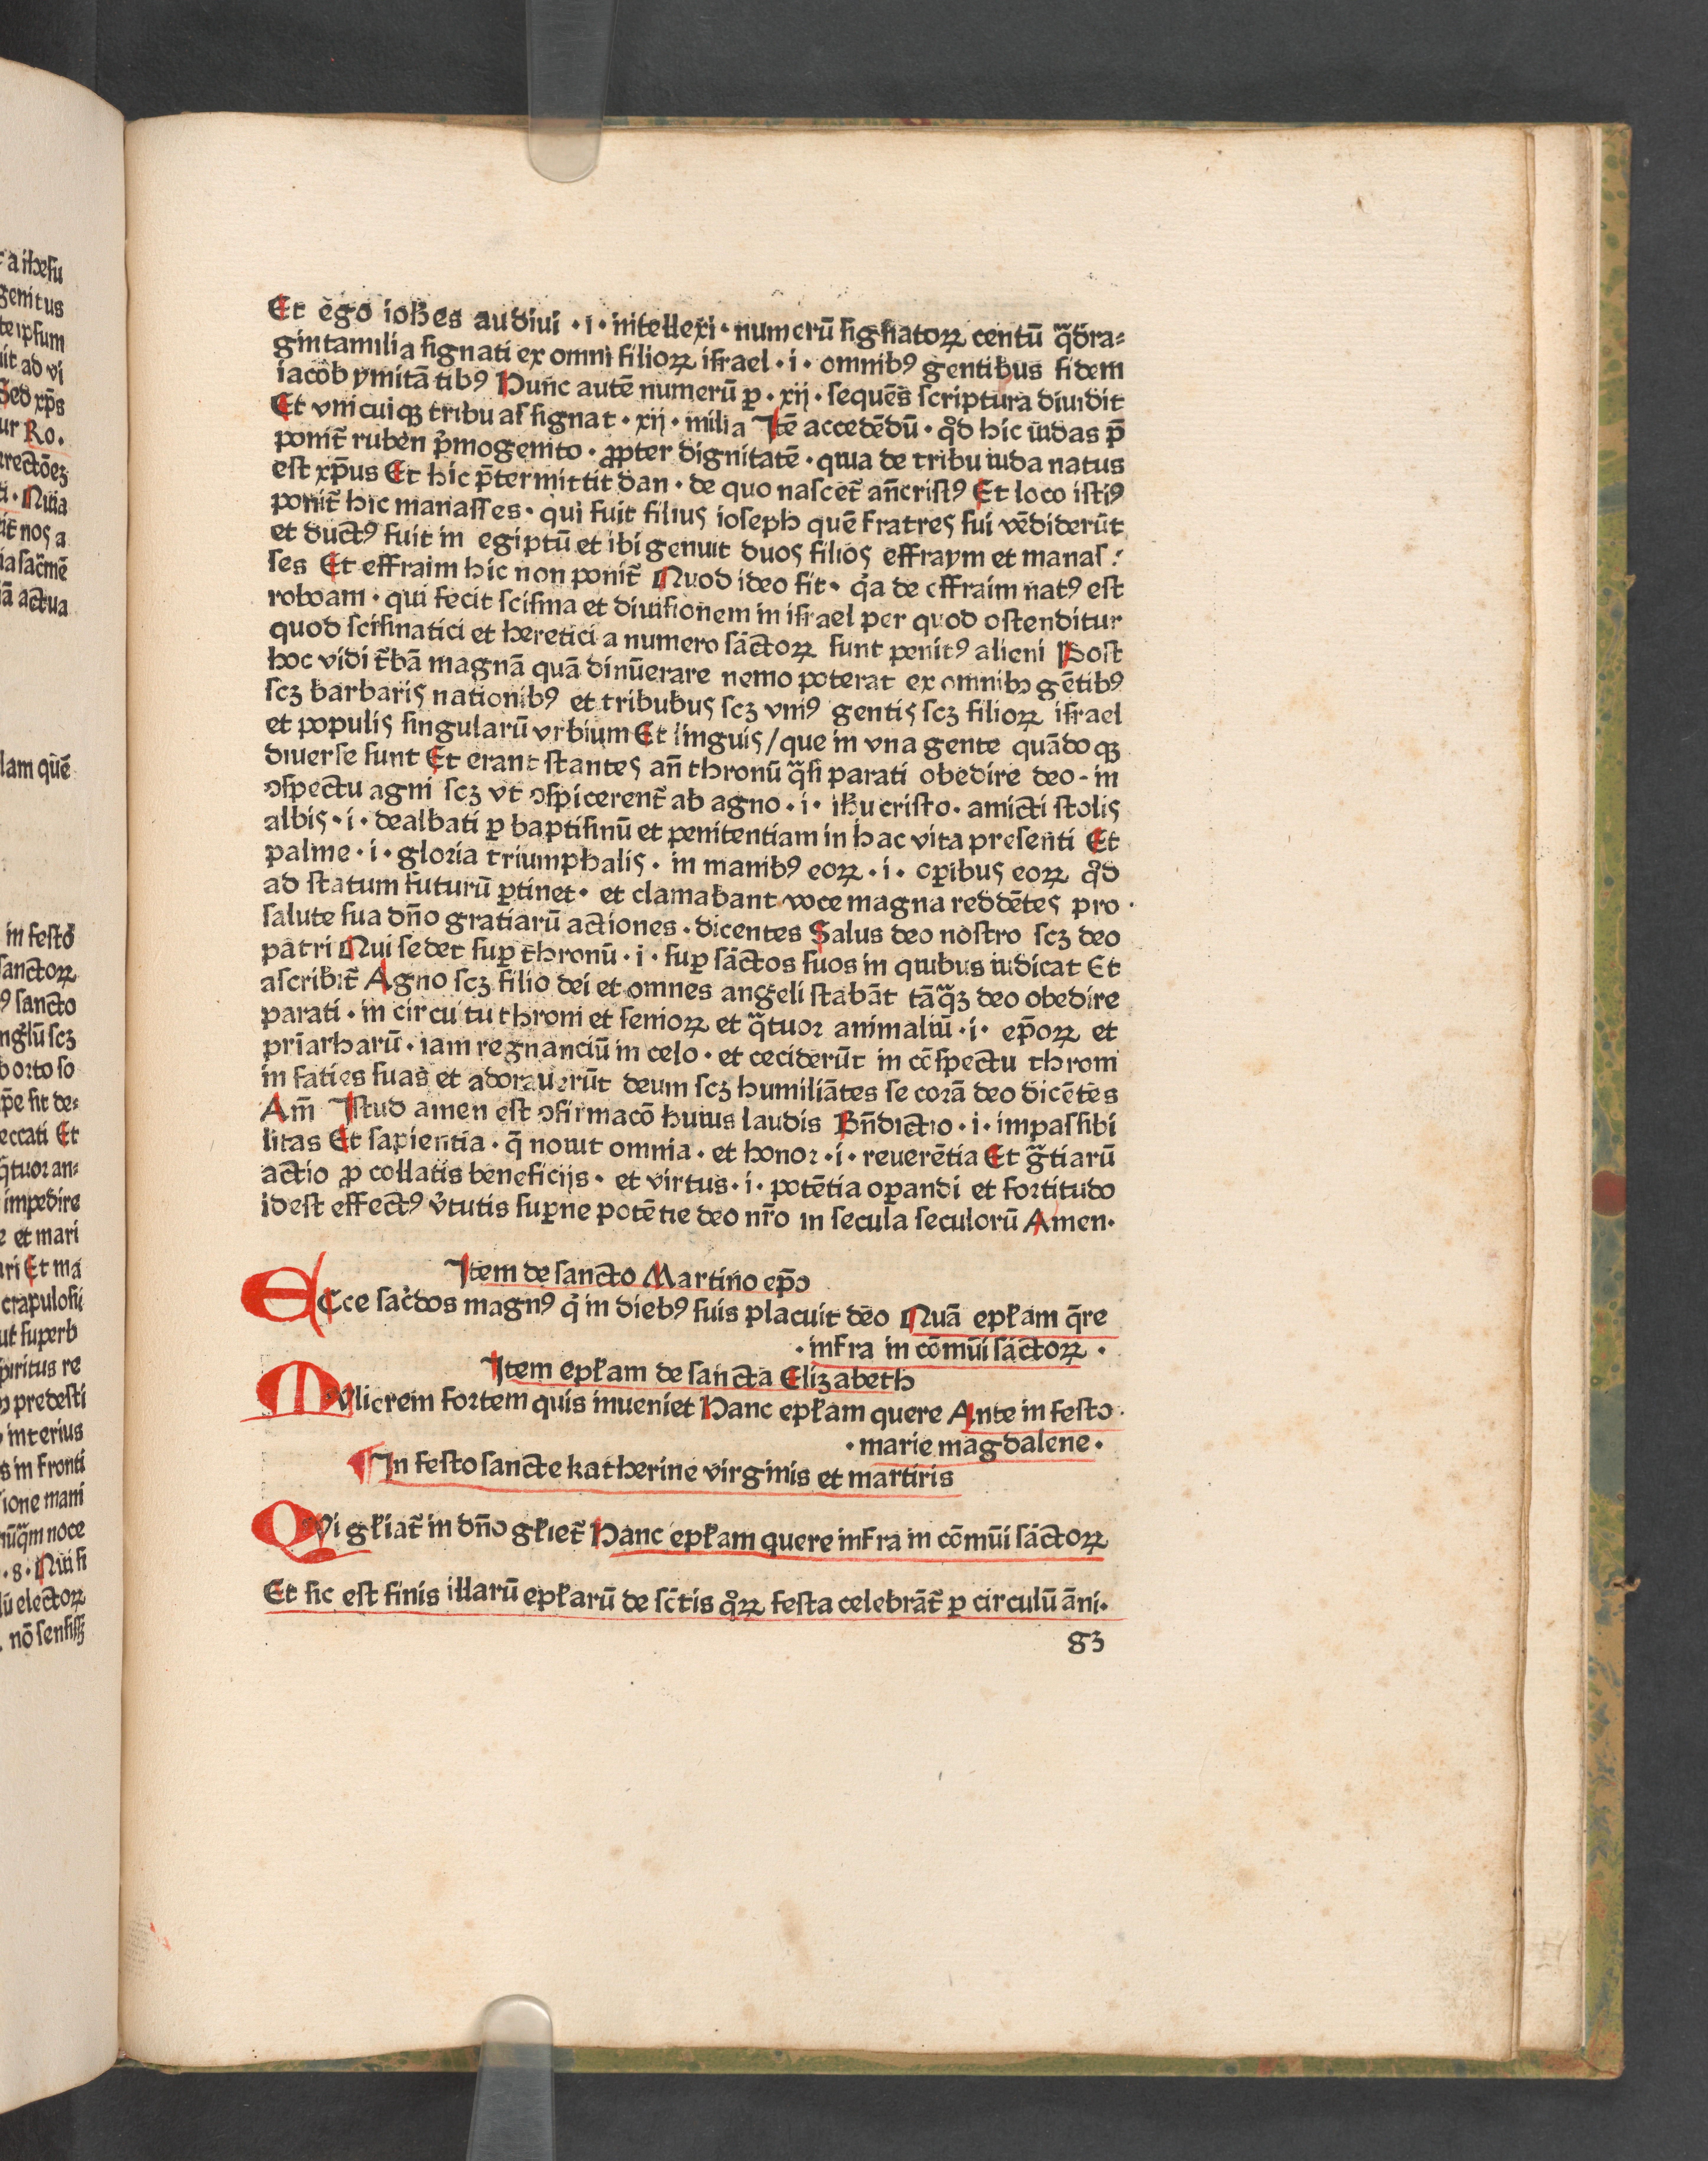 Et ego ioh̄es audiui · i · intellexi · numerū signatoꝝ centū q̄dra⸗
gintamilia signati ex omni filioꝝ israel · i · omnibꝰ gentibus fidem
iacob ymitātibꝰ Hunc autē numerū ꝑ · xij · sequēs scriptura diuidit
Et vnicuiqꝫ tribu assignat · xij · milia Itē accedēdū · qd̓ hic iudas p̄
ponit̄ ruben p̓mogenito · ꝓpter dignitatē · quia de tribu iuda natus
est xp̄us Et hic p̄termittit dan · de quo nascet̄ an̄cristꝰ Et loco istiꝰ
ponit̄ hic manasses · qui fuit filius ioseph quē fratres sui vēdiderūt
et ductꝰ fuit in egiptū et ibi genuit duos filios effraym et manas⸗
ses Et effraim hic non ponit̄ Quod ideo fit · q̓a de effraim natꝰ est
roboam · qui fecit scisma et diuisionem in israel per quod ostenditur
quod scismatici et heretici a numero sāctoꝝ sunt penitꝰ alieni Post
hoc vidi t̄bā magnā quā dinūerare nemo poterat ex omnibꝰ gētibꝰ
scꝫ barbaris nationibꝰ et tribubus scꝫ vniꝰ gentis scꝫ filioꝝ israel
et populis singularū vrbium Et linguis / que in vna gente quādoqꝫ
diuerse sunt Et erant stantes an̄ thronū q̄si parati obedire deo - in
ꝯspectu agni scꝫ vt ꝯspicerent̄ ab agno · i · ih̄u cristo · amicti stolis
albis · i · dealbati ꝑ baptismū et penitentiam in hac vita presenti Et
palme · i · gloria triumphalis · in manibꝰ eoꝝ · i · oꝑibus eoꝝ qd̓
ad statum futurū ꝑtinet · et clamabant voce magna reddētes pro ·
salute sua dn̄o gratiarū actiones · dicentes Salus deo nostro scꝫ deo
patri Qui sedet suꝑ thronū · i · suꝑ sāctos suos in quibus iudicat Et
ascribit̄ Agno scꝫ filio dei et omnes angeli stabāt tāq̄ꝫ deo obedire
parati · in circuitu throni et senioꝝ et q̄tuor animaliū · i · ep̄oꝝ et
pr̄iarharū · iam regnanciū in celo · et ceciderūt in cōspectu throni
in faties suas et adorauerūt deum scꝫ humiliātes se corā deo dicētes
Am̄ Istud amen est ꝯfirmacō huius laudis Bn̄dictio · i · impassibi
litas Et sapientia · q̄ nouit omnia · et honor · i · reuerētia Et gr̄tiarū
actio ꝓ collatis beneficijs · et virtus · i · potētia oꝑandi et fortitudo
idest effectꝰ v̓tutis suꝑne potētie deo nr̄o in secula seculorū Amen ·
Item de sancto Martino ep̄o
ECce sac̓dos magnꝰ q̓ in diebꝰ suis placuit deo Quā epl̄am q̄re
· infra in cōmūi sāctoꝝ ·
Item epl̄am de sancta Elizabeth
MVlierem fortem quis inueniet Hanc epl̄am quere Ante in festo ·
· marie magdalene ·
¶ In festo sancte katherine virginis et martiris
QVi gl̄iat̄ in dn̄o gl̄iet̄ Hanc epl̄am quere infra in cōmūi sāctoꝝ
Et sic est finis illarū epl̄arū de sc̄tis qͦꝝ festa celebrāt̄ ꝑ circulū āni ·
83